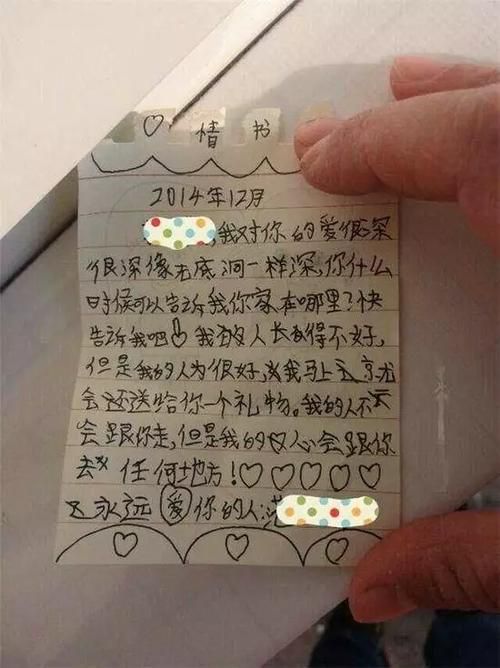 ♡ 情书
2014年12月
,我对你的爱很深
很深像无底洞一样深,你什么
时侯可以告诉我你家在哪里?快
告诉我吧!我人长得不好,
但是我的人为很好,我马上
会还送给你一个礼物。我的人不
会跟你走,但是我的心会跟你
去任何地方!♡♡♡♡♡
永远爱你的人:范